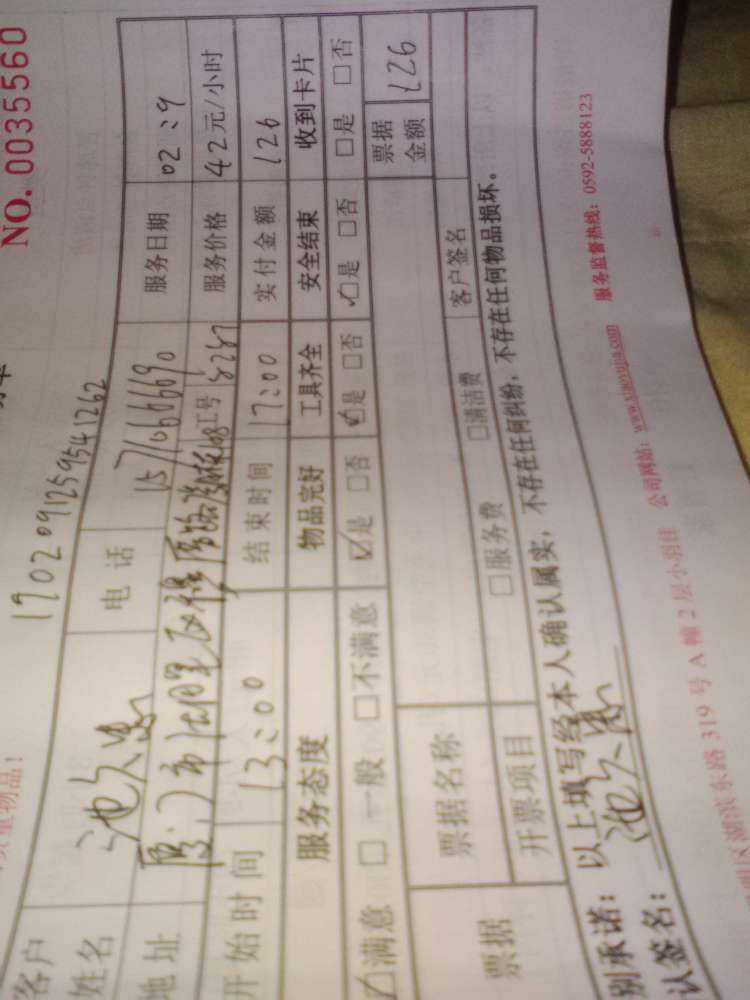 NO.0035560
贵重物品!
190209125954126​2
客户姓名 池久惠 电话 15710666690 服务日期 02:29
地址 厦门市 工号 8287 服务价格 42元/小时
开始时间 13:00 结束时间 17:00 实付金额 126
服务态度 物品完好 工具齐全 安全结束 收到卡片
☑满意 □一般 □不满意 ☑是 □否 ☑是 □否 ☑是 □否 □是 □否
票据 票据名称 票据金额 126
开票项目 □服务费 □清洁费 客户签名
别承诺:以上填写经本人确认属实,不存在任何纠纷,不存在任何物品损坏。
认签名:池久惠 公司网站:www.xiaoyujia.com 服务监督热线:0592-5888123
区湖滨东路319号A幢2层小羽佳